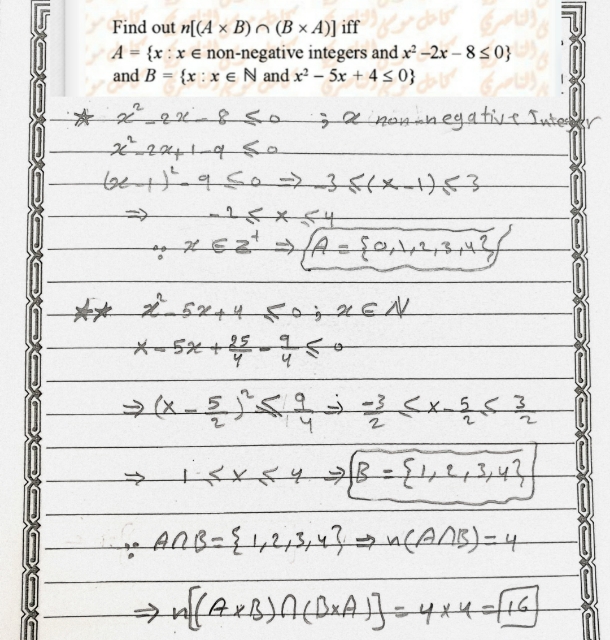 Find out n[(A × B) ∩ (B × A)] iff
A = {x : x ∈ non-negative integers and x² –2x – 8 ≤ 0}
and B = {x : x ∈ ℕ and x² – 5x + 4 ≤ 0}
* x² - 2x - 8 ≤ 0 ; x non-negative Integer
x² - 2x + 1 - 9 ≤ 0
(x - 1)² - 9 ≤ 0 ⇒ -3 ≤ (x - 1) ≤ 3
⇒ -2 ≤ x ≤ 4
∵ x ∈ Z⁺ ⇒ A = {0,1,2,3,4}
** x² - 5x + 4 ≤ 0 ; x ∈ N
x - 5x + 25/4 - 9/4 ≤ 0
⇒ (x - 5/2)² ≤ 9/4 ⇒ -3/2 ≤ x - 5/2 ≤ 3/2
⇒ 1 ≤ x ≤ 4 ⇒ B = {1,2,3,4}
∵ A∩B = {1,2,3,4} ⇒ n(A∩B) = 4
⇒ n[(A×B)∩(B×A)] = 4×4 = 16